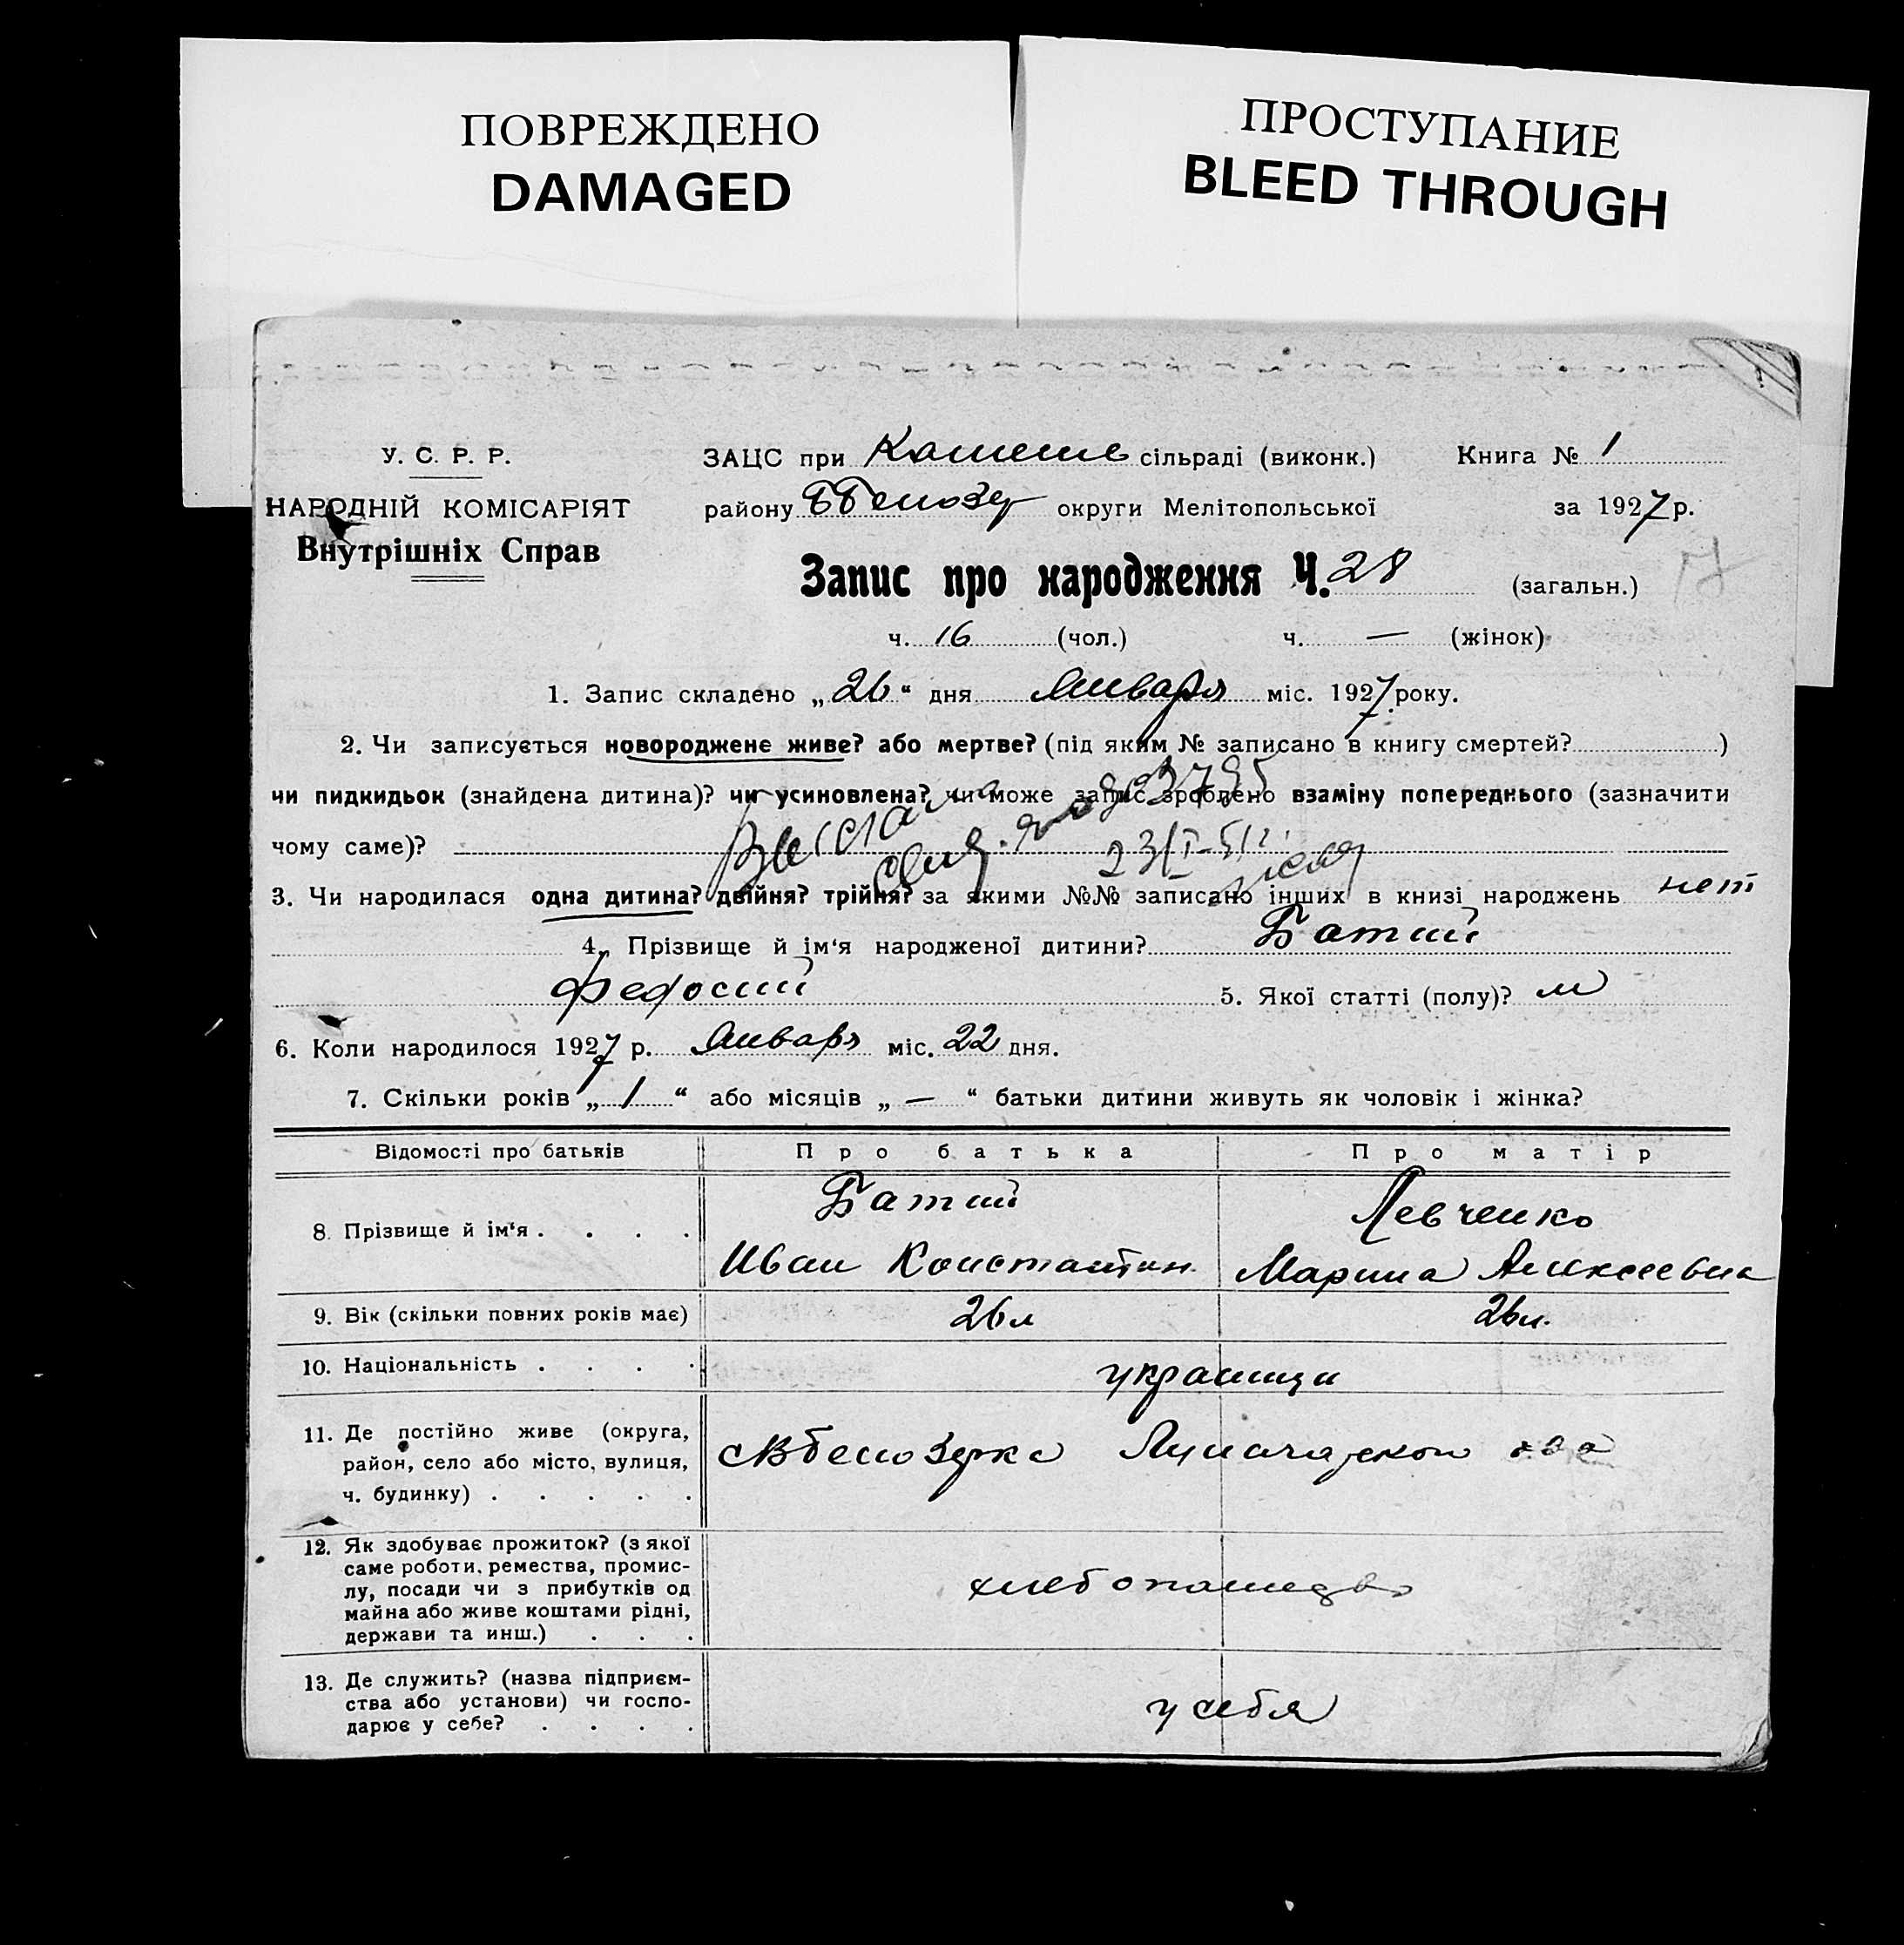 ПОВРЕЖДЕНО
DAMAGED
ПРОСТУПАНИЕ
BLEED THROUGH
У. С. Р. Р.
НАРОДНІЙ КОМІСАРІЯТ
Внутрішніх Справ
ЗАЦС при сільраді (виконк.) Книга № 1
району округи Мелітопольської за 1927 р.
Запис про народження Ч. 28 (загальн.)
ч. 16 (чол.) ч. — (жінок)
1. Запис складено „26“ дня Января міс. 1927 року.
2. Чи записується новороджене живе? або мертве? (під яким № записано в книгу смертей? )
чи пидкидьок (знайдена дитина)? чи усиновлена? чи може запис зроблено взаміну попереднього (зазначити
чому саме)?
3. Чи народилася одна дитина? двійня? трійня? за якими №№ записано інших в книзі народжень нет
4. Прізвище й ім‘я народженої дитини? Батий
Федосий 5. Якої статті (полу)? м
6. Коли народилося 1927 р. Январь міс. 22 дня.
7. Скільки років „1“ або місяців „—“ батьки дитини живуть як чоловік і жінка?
Відомості про батьків Про батька Про матір
8. Прізвище й ім‘я . . . . Батий Левченко
Иван Константин. Марина Алексеевна
9. Вік (скільки повних років має) 26 л 26 л.
10. Національність . . . . украинци
11. Де постійно живе (округа,
район, село або місто, вулиця,
ч. будинку) . . . . .
12. Як здобуває прожиток? (з якої
саме роботи, ремества, промис-
лу, посади чи з прибутків од
майна або живе коштами рідні,
держави та инш.) . . .
хлебопашедво
13. Де служить? (назва підприєм-
ства або установи) чи госпо-
дарює у себе? . . . .
у себя